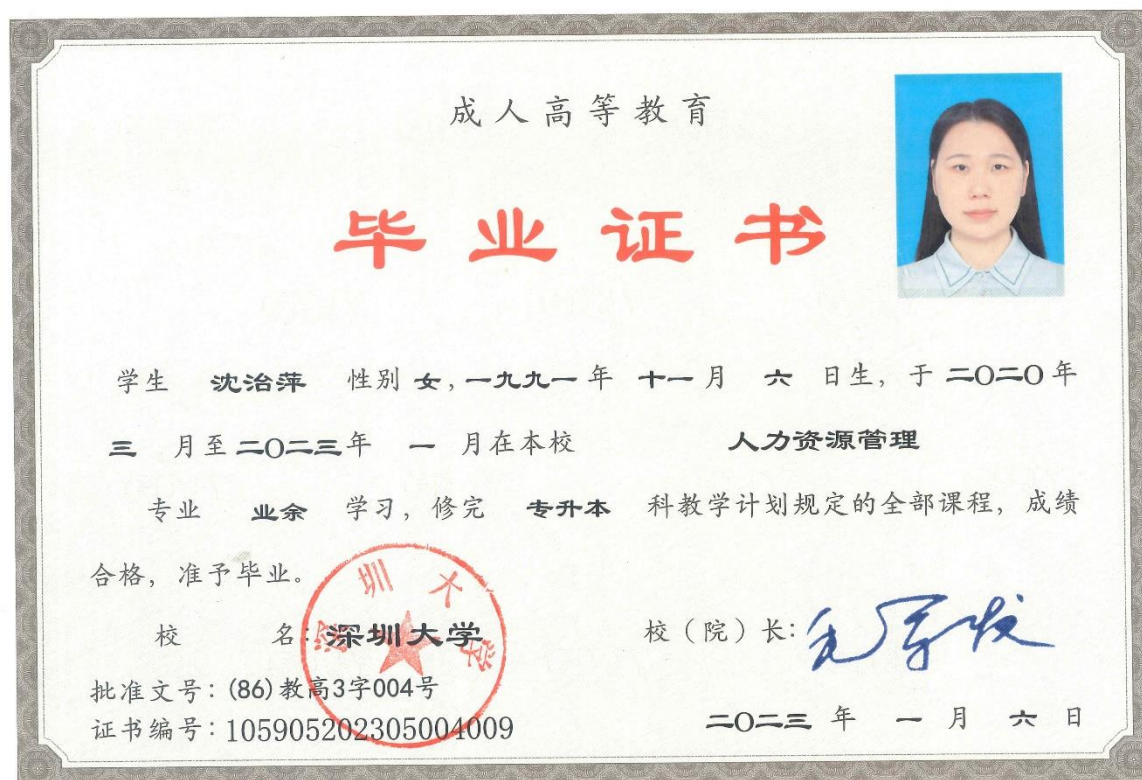 成人高等教育
毕业证书
学生 沈治萍 性别 女，一九九一 年 十一 月 六 日生，于 二〇二〇 年
三 月至 二〇二三 年 一 月在本校 人力资源管理
专业 业余 学习，修完 专升本 科教学计划规定的全部课程，成绩
合格，准予毕业。
校 名：深圳大学
深圳大学
校（院）长：毛军发
批准文号：(86)教高3字004号
证书编号：105905202305004009
二〇二三 年 一 月 六 日